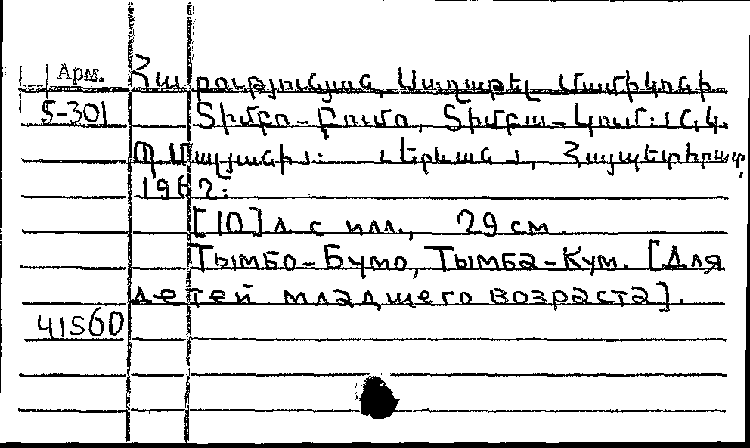 Арм. Հարությունյան, Սաղաթել Մամիկոնի
5-301 Տիմբո-Բումո, Տիմբա-Կում: Նկ.
Պ. Մալյանի: Երևան, Հայպետհրատ,
1962:
[10] л с илл., 29 см.
Тымбо-Бумо, Тымба-Кум. [Для
детей младшего возраста].
41560